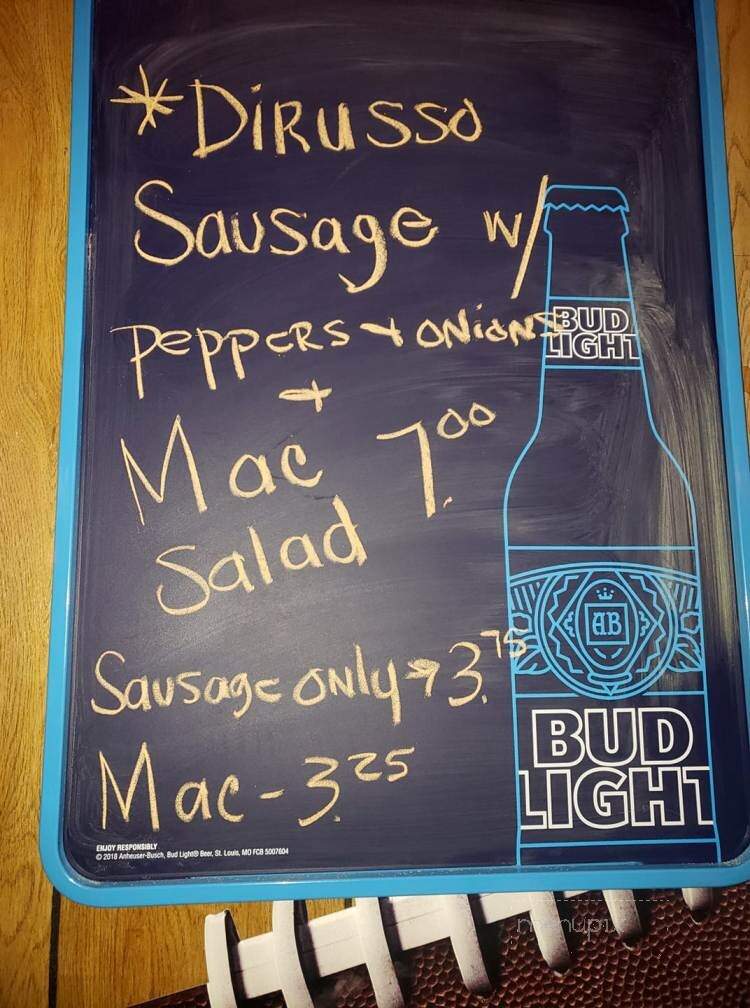 *DiRusso
Sausage w/
Peppers + Onions
+
Mac 7.00
Salad
Sausage only → 3.75
Mac - 3.25
BUD
LIGHT
AB
BUD
LIGHT
ENJOY RESPONSIBLY
© 2018 Anheuser-Busch, Bud Light® Beer, St. Louis, MO FCB 5007604
menupix